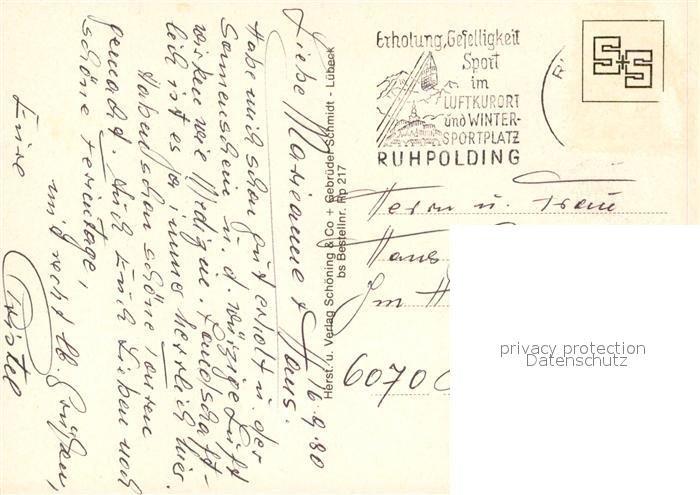 16.9.80
Liebe Marianne + Hans.
Habe mich schon gut erholt u. der
Sonnenschein u. d. würzige Luft
wirken wie Medizin. Landschaft-
lich ist es ja immer herrlich hier.
Habe schon schöne Touren
gemacht. Auch Euch Lieben noch
schöne Ferientage,
und recht lb. Grüßen,
Eure
Christel
Herst. u. Verlag Schöning & Co + Gebrüder Schmidt - Lübeck
bs Bestellnr. Rp 217
Erholung, Geselligkeit
Sport
im
LUFTKURORT
und WINTER-
SPORTPLATZ
RUHPOLDING
S+S
Herrn u. Frau
Hans
Im
6070
privacy protection
Datenschutz